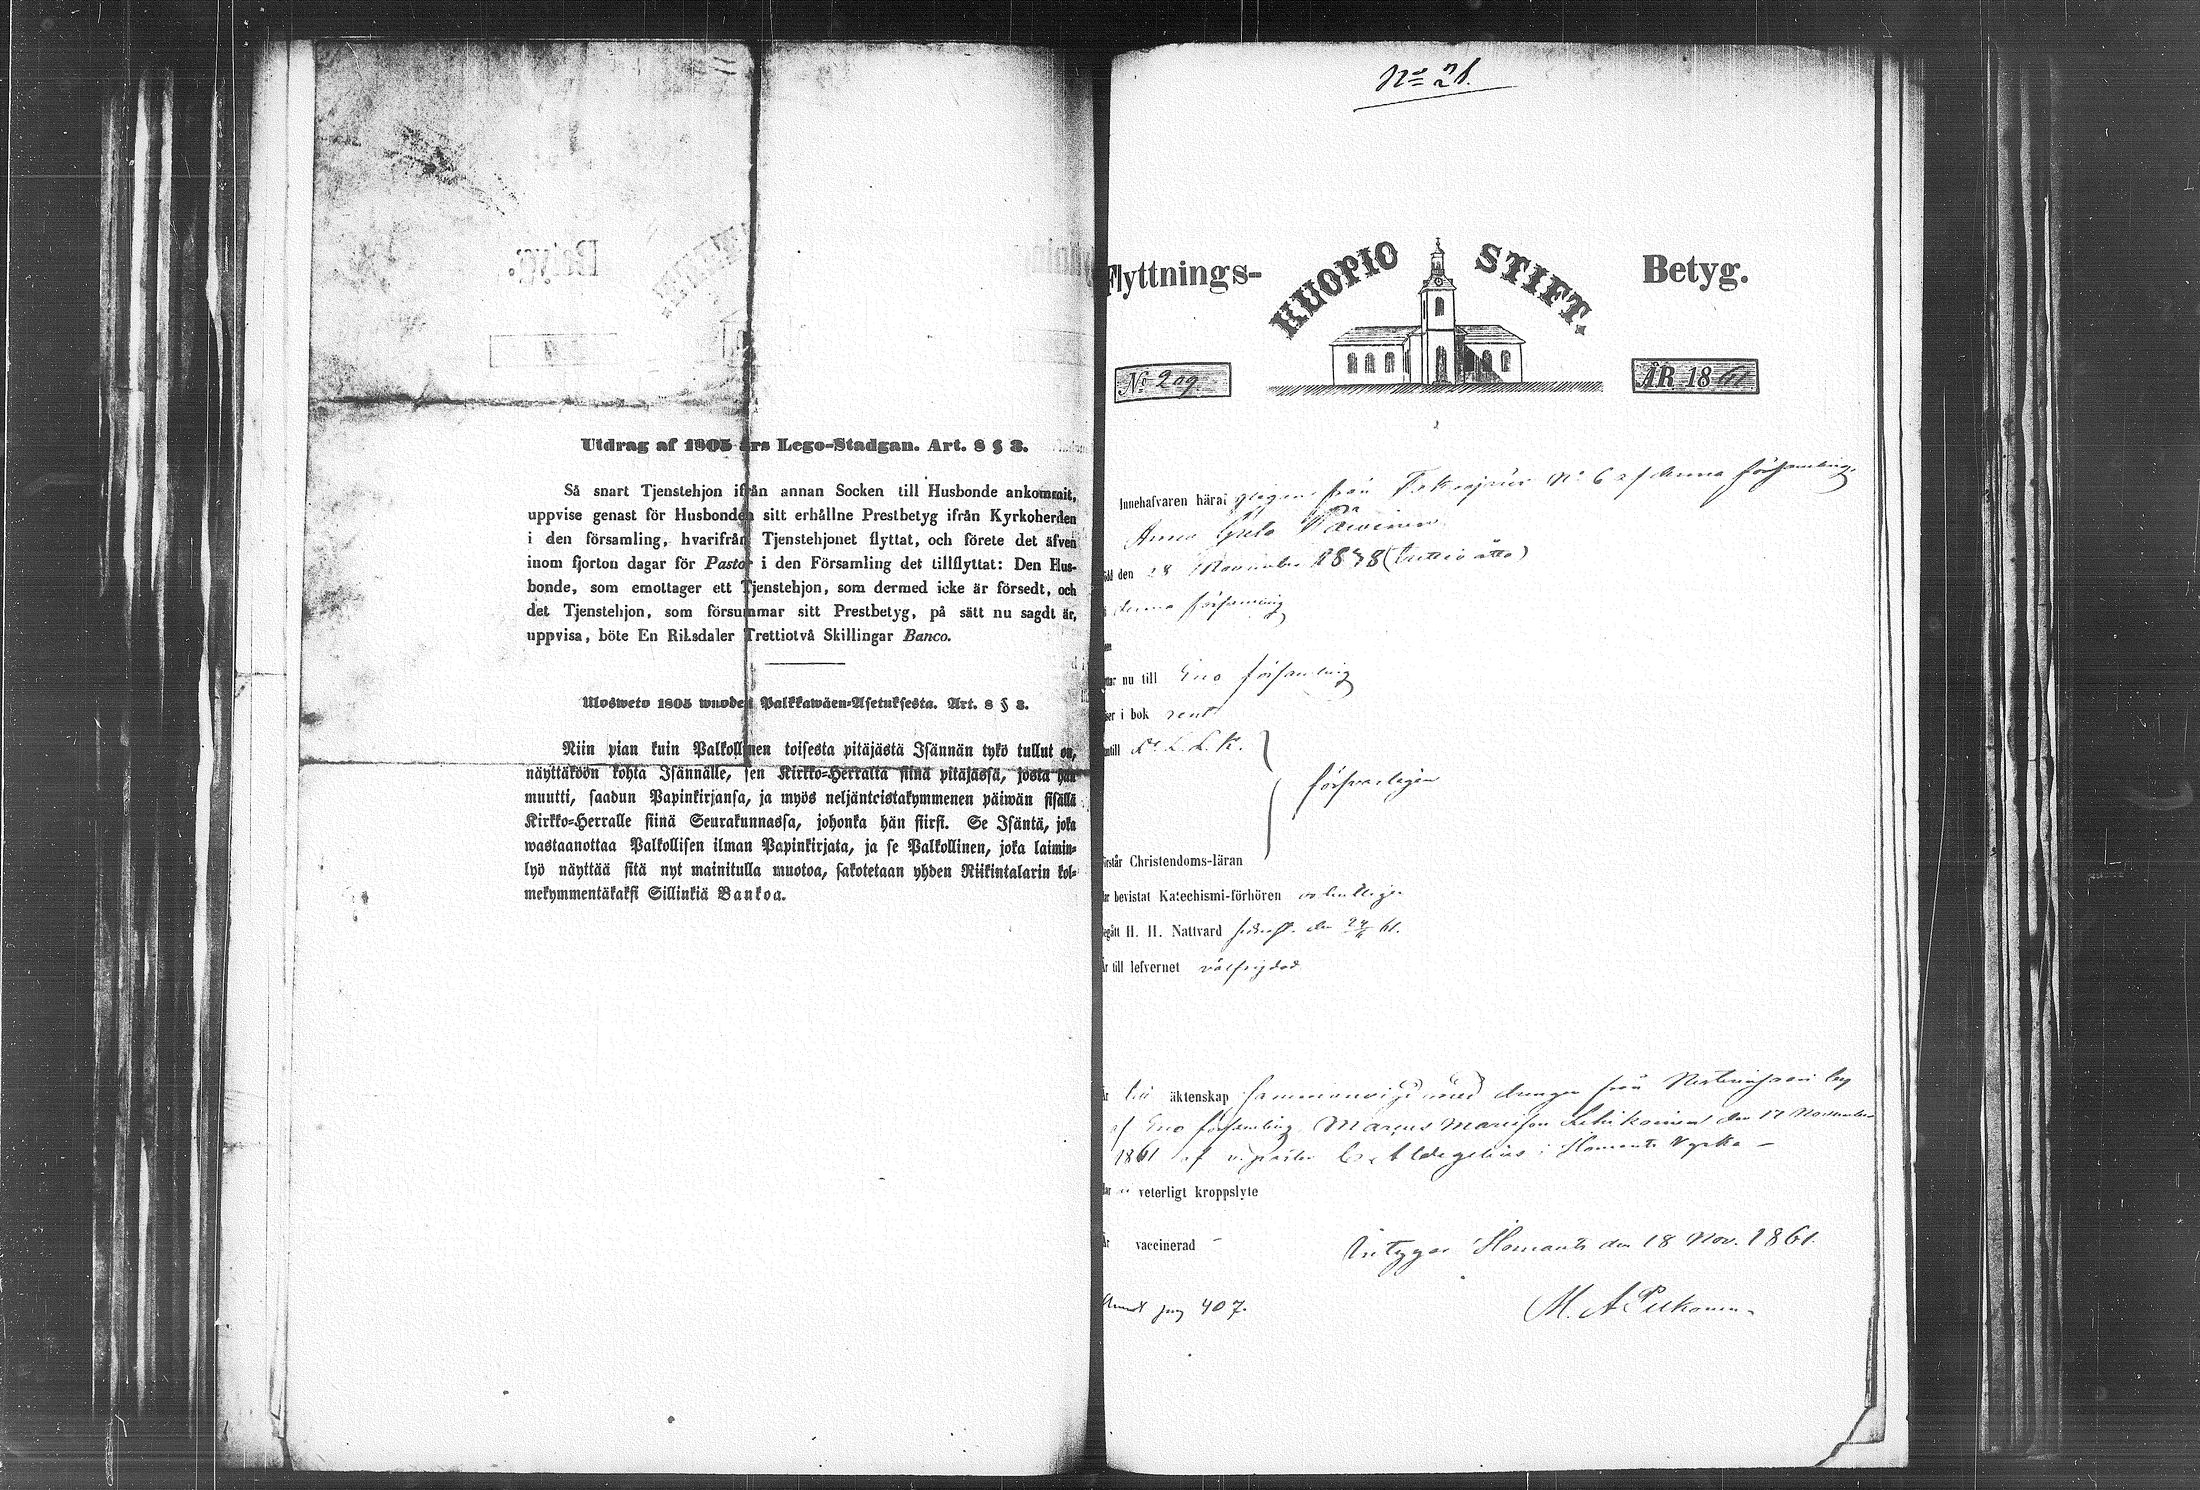 Utdrag af 1805 års Lego-Stadgan. Art. 8 § 3.
Så snart Tjenstehjon ifrån annan Socken till Husbonde ankommit,
uppvise genast för Husbonden sitt erhållne Prestbetyg ifrån Kyrkoherden
i den församling, hvarifrån Tjenstehjonet flyttat, och förete det äfven
inom fjorton dagar för Pastor i den Församling det tillflyttat: Den Hus-
bonde, som emottager ett Tjenstehjon, som dermed icke är försedt, och
det Tjenstehjon, som försummar sitt Prestbetyg, på sätt nu sagdt är,
uppvisa, böte En Riksdaler Trettiotvå Skillingar Banco.
Ulosweto 1805 wuoden Palkkawäen-Asetuksesta. Art. 8 § 3.
Niin pian kuin Palkollinen toisesta pitäjästä Isännän tykö tullut on,
näyttäköön kohta Isännälle, sen Kirkko-Herralta siinä pitäjässä, josta hän
muutti, saadun Papinkirjansa, ja myös neljäntoistakymmenen päiwän sisällä
Kirkko-Herralle siinä Seurakunnassa, johonka hän siirsi. Se Isäntä, joka
wastaanottaa Palkollisen ilman Papinkirjata, ja se Palkollinen, joka laimin-
lyö näyttää sitä nyt mainitulla muotoa, sakotetaan yhden Riikintalarin kol-
mekymmentäkaksi Sillinkiä Bankoa.
No 21.
Flyttnings- KUOPIO STIFT. Betyg.
No 209 ÅR 1861
Innehafvaren häraf från No 6 af denna församling,
Anna Greta Päivinen
född den 28 November 1838 (trettio åtta)
i denna församling
nu till Eno församling
i bok rent
intill
försvarligen
förstår Christendoms-läran
bevistat Katechismi-förhören ordentligen
begått H. H. Nattvard sednast den 61.
är till lefvernet välfrejdad
Är till äktenskap sammanvigd med drängen från by
af Eno församling Marcus den 17 November
1861 af i Ilomants Kyrka —
veterligt kroppslyte
Är vaccinerad
Intygar Ilomants den 18 Nov. 1861.
pag 407.
M. A Pelkonen